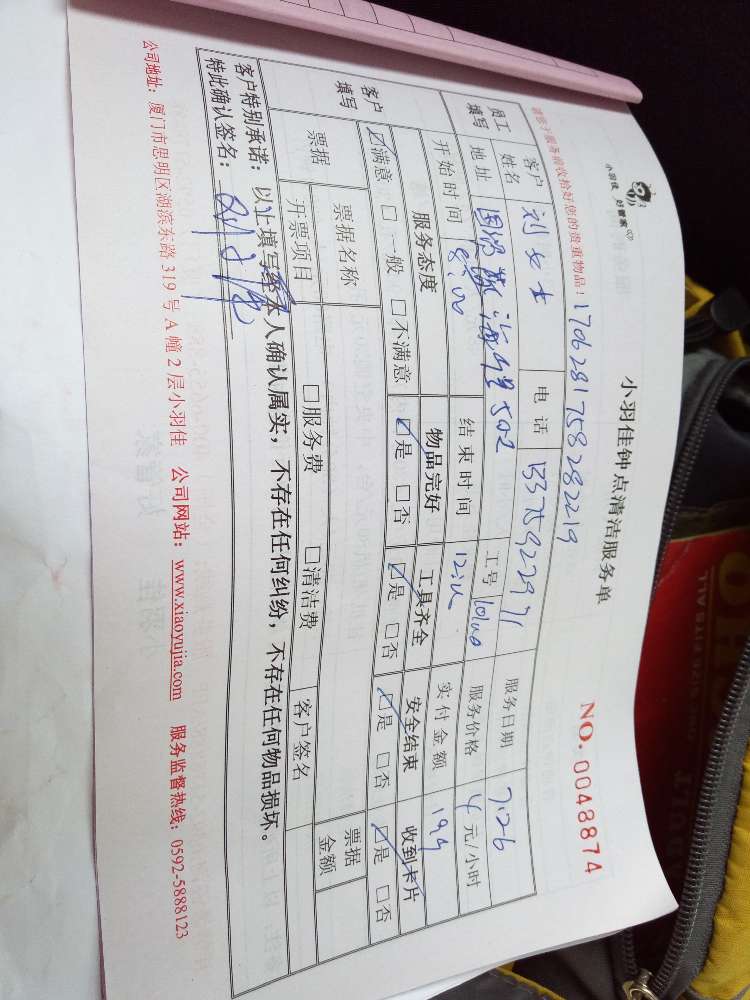 小羽佳 好管家
小羽佳钟点清洁服务单
NO. 0048874
请您于服务前收拾好您的贵重物品!
1706281758282219
员工填写
客户姓名 刘女士 电话 服务日期 7.26
地址 502 工号 服务价格 4 元/小时
开始时间 8:00 结束时间 实付金额 194
客户填写
服务态度 物品完好 工具齐全 安全结束 收到卡片
☑满意 □一般 □不满意 ☑是 □否 ☑是 □否 ☑是 □否 ☑是 □否
票据 票据名称 客户签名 票据金额
开票项目 □服务费 □清洁费
客户特别承诺: 以上填写经本人确认属实, 不存在任何纠纷, 不存在任何物品损坏。
特此确认签名:
公司地址: 厦门市思明区湖滨东路 319 号 A 幢 2 层小羽佳 公司网站: www.xiaoyujia.com 服务监督热线: 0592-5888123